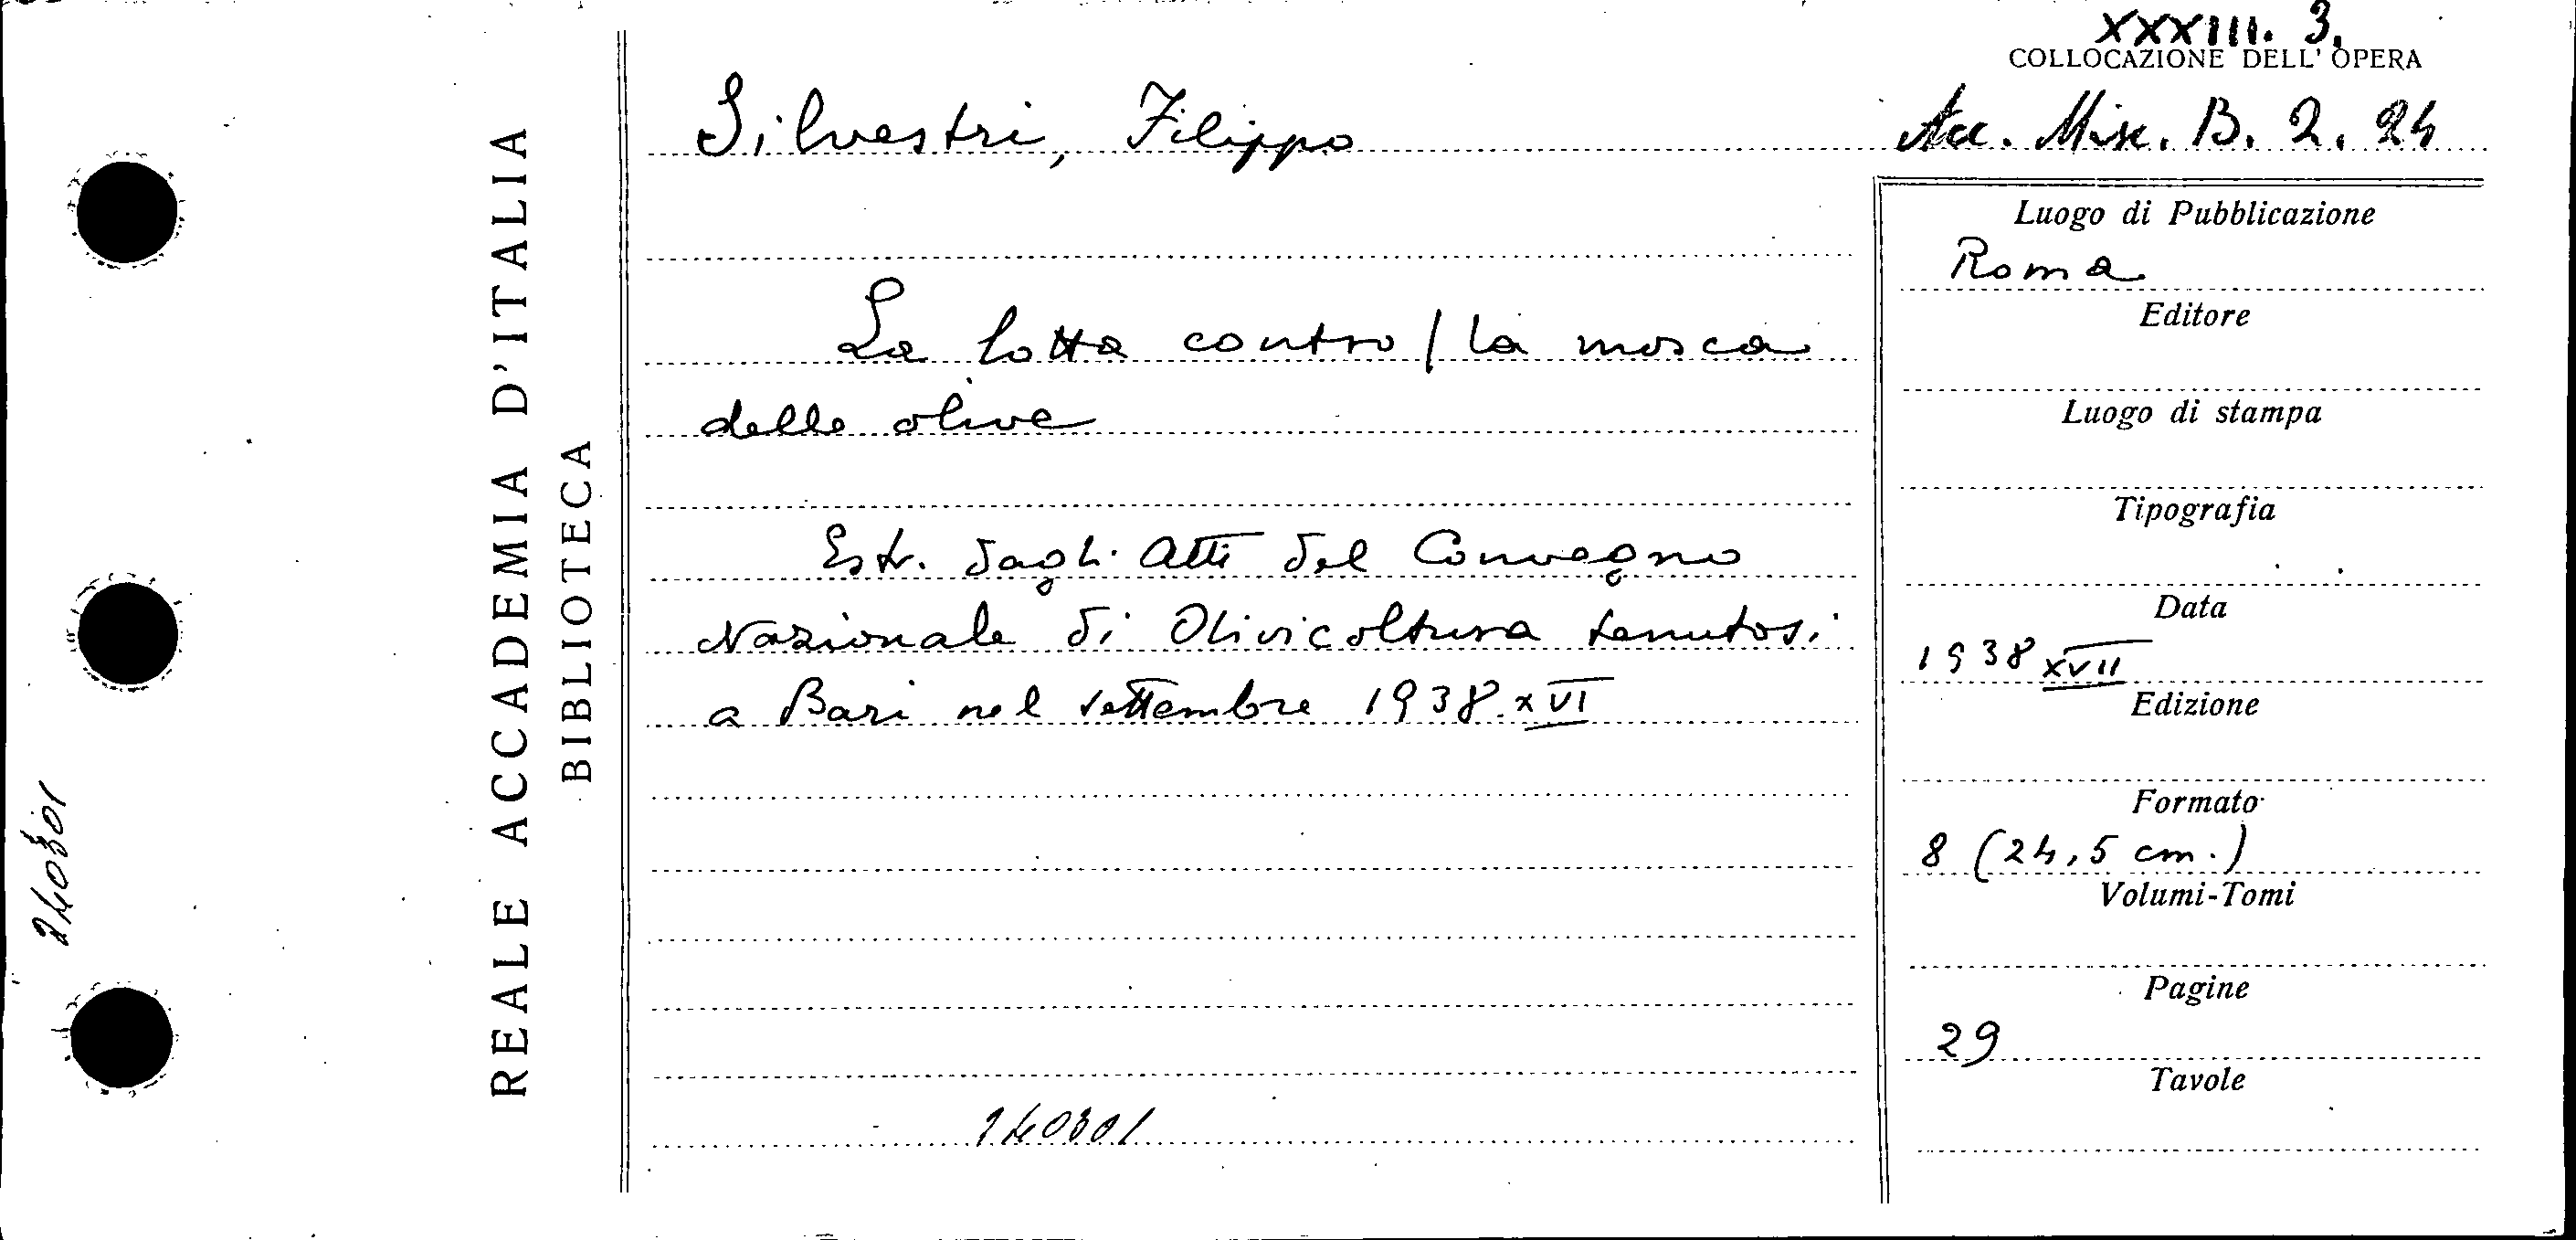 XXXIII. 3.
COLLOCAZIONE DELL'OPERA
Acc. Misc. B. 2. 24
REALE ACCADEMIA D'ITALIA
BIBLIOTECA
Silvestri, Filippo
La lotta contro / la mosca
delle olive
Estr. dagli Atti del Convegno
Nazionale di Olivicoltura tenutosi
a Bari nel settembre 1938 XVI
Luogo di Pubblicazione
Roma
Editore
Luogo di stampa
Tipografia
Data
1938 XVII
Edizione
Formato
8 (24,5 cm.)
Volumi-Tomi
Pagine
29
Tavole